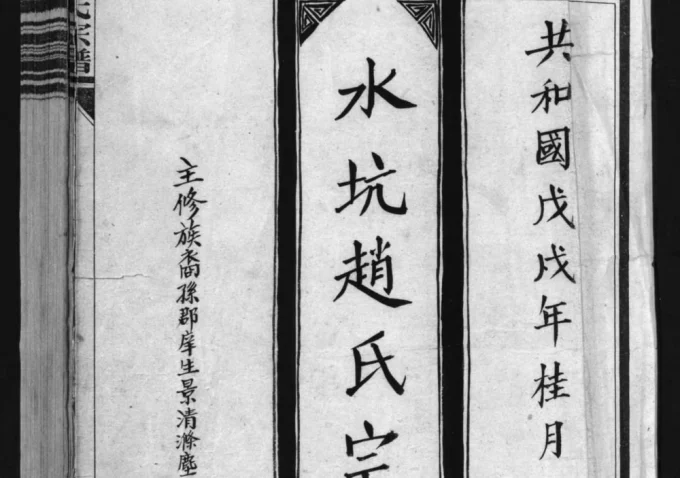 共和國戊戌年桂月
水坑趙氏宗
主修族裔孫郡庠生景清滌塵
氏宗譜